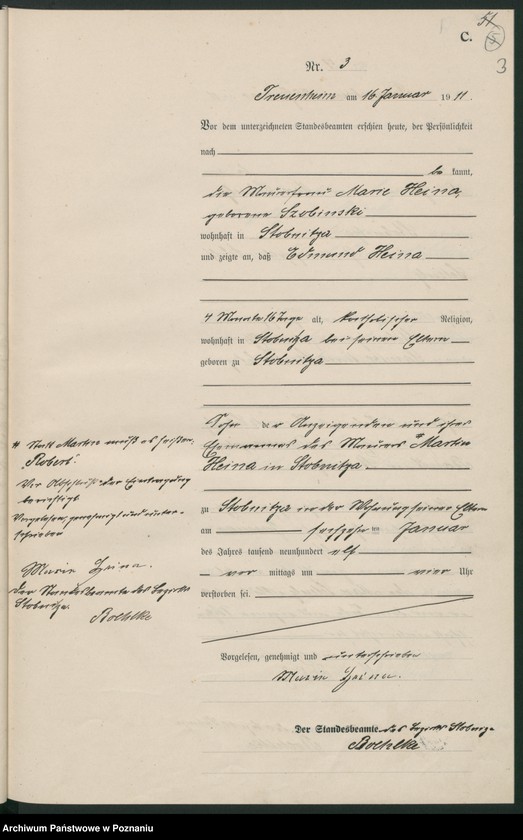 C.
3
Nr. 3
Treuenheim am 16 Januar 1911.
Vor dem unterzeichneten Standesbeamten erschien heute, der Persönlichkeit
nach
be kannt,
die Maurerfrau Marie Heina,
geborene Szobinski
wohnhaft in Stobnitza
und zeigte an, daß Edmund Heina
4 Monate 16 Tage alt, katholischer Religion,
wohnhaft in Stobnitza bei seinen Eltern
geboren zu Stobnitza
Sohn der Anzeigenden und ihres
Ehemannes des Maurers Martin
Heina in Stobnitza
zu Stobnitza in der Wohnung seiner Eltern
am sechzehnten Januar
des Jahres tausend neunhundert elf
vor mittags um vier Uhr
verstorben sei.
Vorgelesen, genehmigt und unterschrieben
Marie Heina.
Der Standesbeamte des Bezirks Stobnitza
Boehlke
# Statt Martin muß es heißen:
Robert.
Vor Abschluß der Eintragung
berichtigt
Vorgelesen, genehmigt und unter-
schrieben
Marie Heina.
Der Standesbeamte des Bezirks
Stobnitza
Boehlke
Archiwum Państwowe w Poznaniu